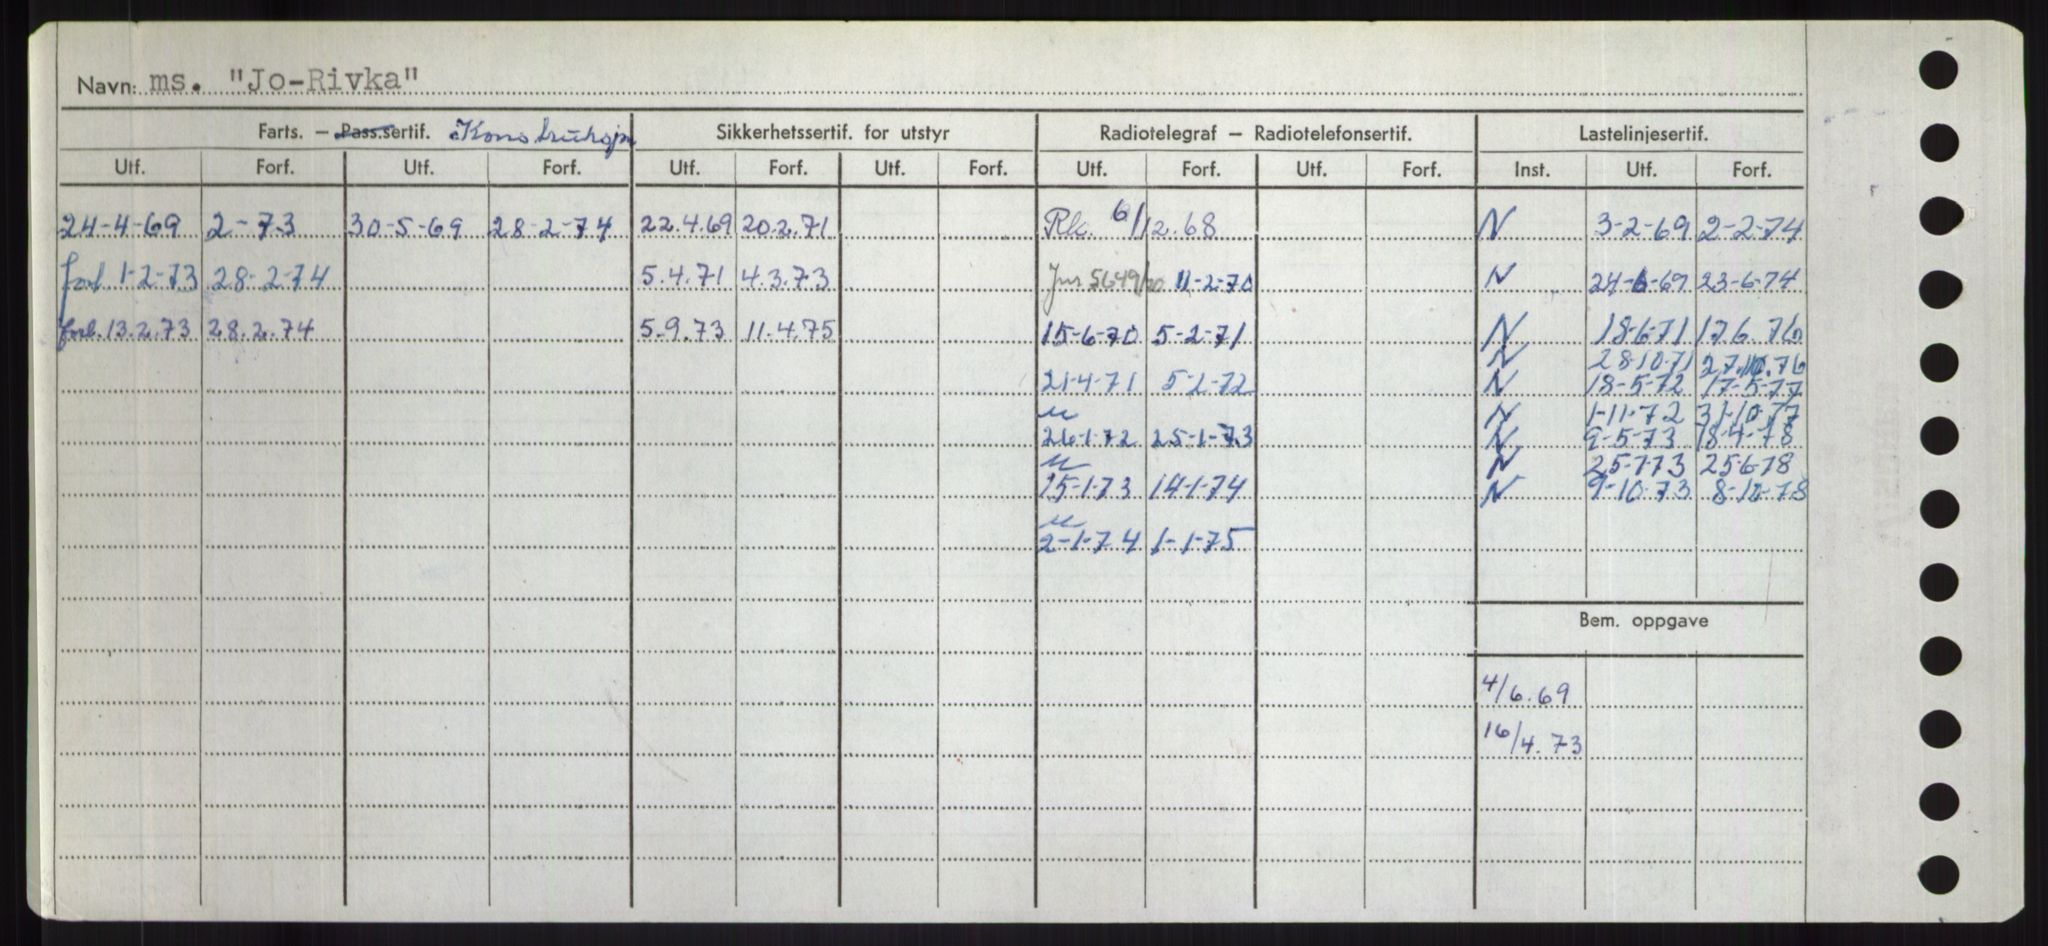 Navn: ms. "Jo-Rivka"
Farts. – Pass.sertif. Sikkerhetssertif. for utstyr Radiotelegraf – Radiotelefonsertif. Lastelinjesertif.
Utf. Forf. Utf. Forf. Utf. Forf. Utf. Forf. Utf. Forf. Utf. Forf. Inst. Utf. Forf.
24-4-69 2-73 30-5-69 28-2-74 22.4.69 20.2.71 Rk. 6/12.68 N 3-2-69 2-2-74
forl. 1-2-73 28-2-74 5.4.71 4.3.73 11-2-70 N 24-6-69 23-6-74
forl. 13.2.73 28.2.74 5.9.73 11.4.75 15-6-70 5-2-71 N 18-6-71 17.6.76
N 28-10-71 27.10.76
21-4-71 5-2-72 N 18-5-72 17-5-77
N 1-11-72 31-10-77
26-1-72 25-1-73 N 9-5-73 18-4-78
N 25-7-73 25-6-78
15-1-73 14-1-74 N 9-10-73 8-10-78
2-1-74 1-1-75
Bem. oppgave
4/6.69
16/4.73